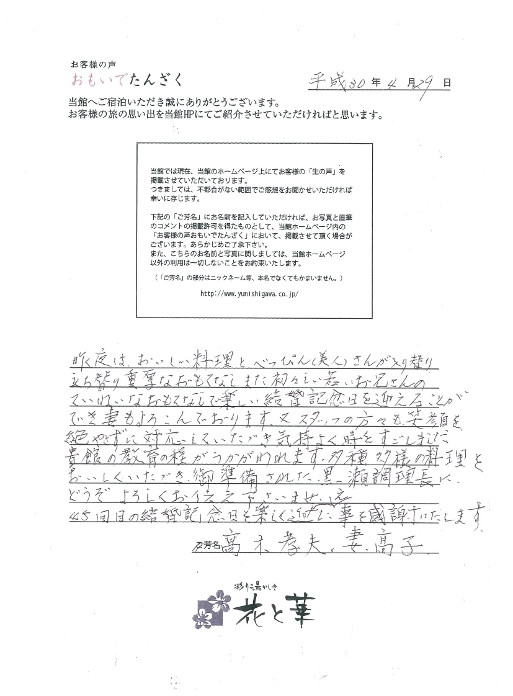 お客様の声
おもいでたんざく
平成30年4月29日
当館へご宿泊いただき誠にありがとうございます。
お客様の旅の思い出を当館HPにてご紹介させていただければと思います。
当館では現在、当館のホームページ上にてお客様の「生の声」を
掲載させていただいております。
つきましては、不都合がない範囲でご感想をお聞かせいただければ
幸いに存じます。
下記の「ご芳名」にお名前を記入していただければ、お写真と直筆
のコメントの掲載許可を得たものとして、当館ホームページ内の
「お客様の声おもいでたんざく」において、掲載させて頂く場合が
ございます。あらかじめご了承下さい。
また、こちらのお名前と写真に関しましては、当館ホームページ
以外の利用は一切しないことをお約束いたします。
(「ご芳名」の部分はニックネーム等、本名でなくてもかまいません。)
http://www.yunishigawa.co.jp/
昨夜は、おいしい料理とべっぴん(美人)さんが入り替り
立ち替り重厚なおもてなしまた初々しい若いお兄さんの
ていねいなおもてなしで楽しい結婚記念日を迎えることが
でき妻もよろこんでおります。又スタッフの方々も、笑顔を
絶やずに対応していただき気持よく時をすごしました
貴館の教育の程がうかがわれます。多種多様の料理を
おいしくいただき、御準備された、黒瀬調理長に、
どうぞよろしくお伝え下さいませ。
45回目の結婚記念日を楽しく過せた事を感謝いたします。
ご芳名 高木孝夫、妻、高子
花と華